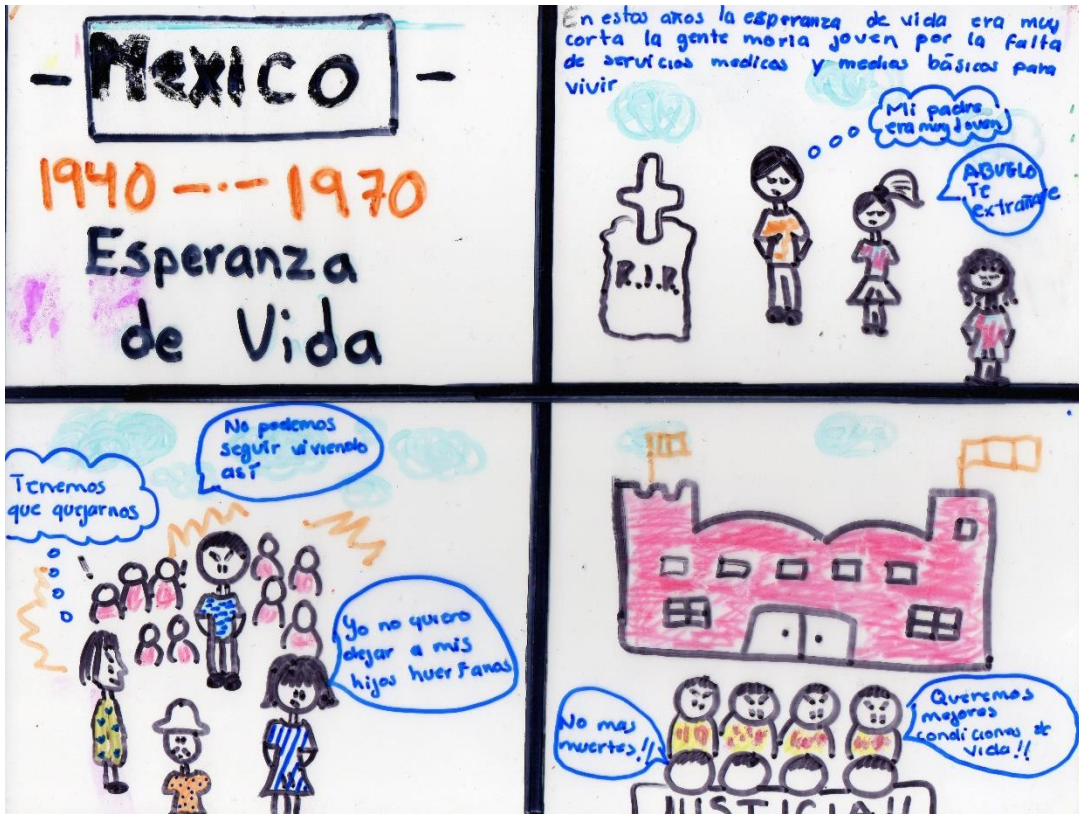 - Mexico -
1940 -.- 1970
Esperanza
de Vida
En estos años la esperanza de vida era muy
corta la gente moria joven por la falta
de servicios medicos y medios básicos para
vivir
Mi padre
era muy Joven
ABUELO
Te
extrañare
R.I.P.
No podemos
seguir viviendo
así
Tenemos
que quejarnos
Yo no quiero
dejar a mis
hijos huerfanos
No mas
muertes!!
Queremos
mejores
condiciones de
vida!!
JUSTICIA!!